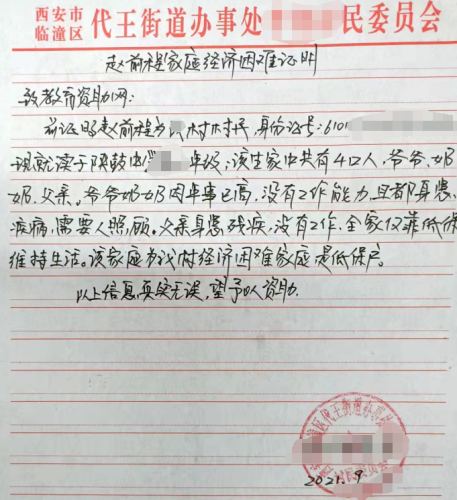 西安市
临潼区 代王街道办事处 民委员会
赵前程家庭经济困难证明
致教育资助网:
兹证明赵前程为 村村民,身份证号:610
现就读于陕鼓中 年级;该生家中共有4口人,爷爷、奶
奶、父亲。爷爷奶奶因年事已高,没有工作能力,且都身患
疾病,需要人照顾。父亲身患残疾,没有工作,全家仅靠低保
维持生活。该家庭为我村经济困难家庭是低保户。
以上信息真实无误,望予以资助。
区代王街道办事处
村民委员会
2021.9